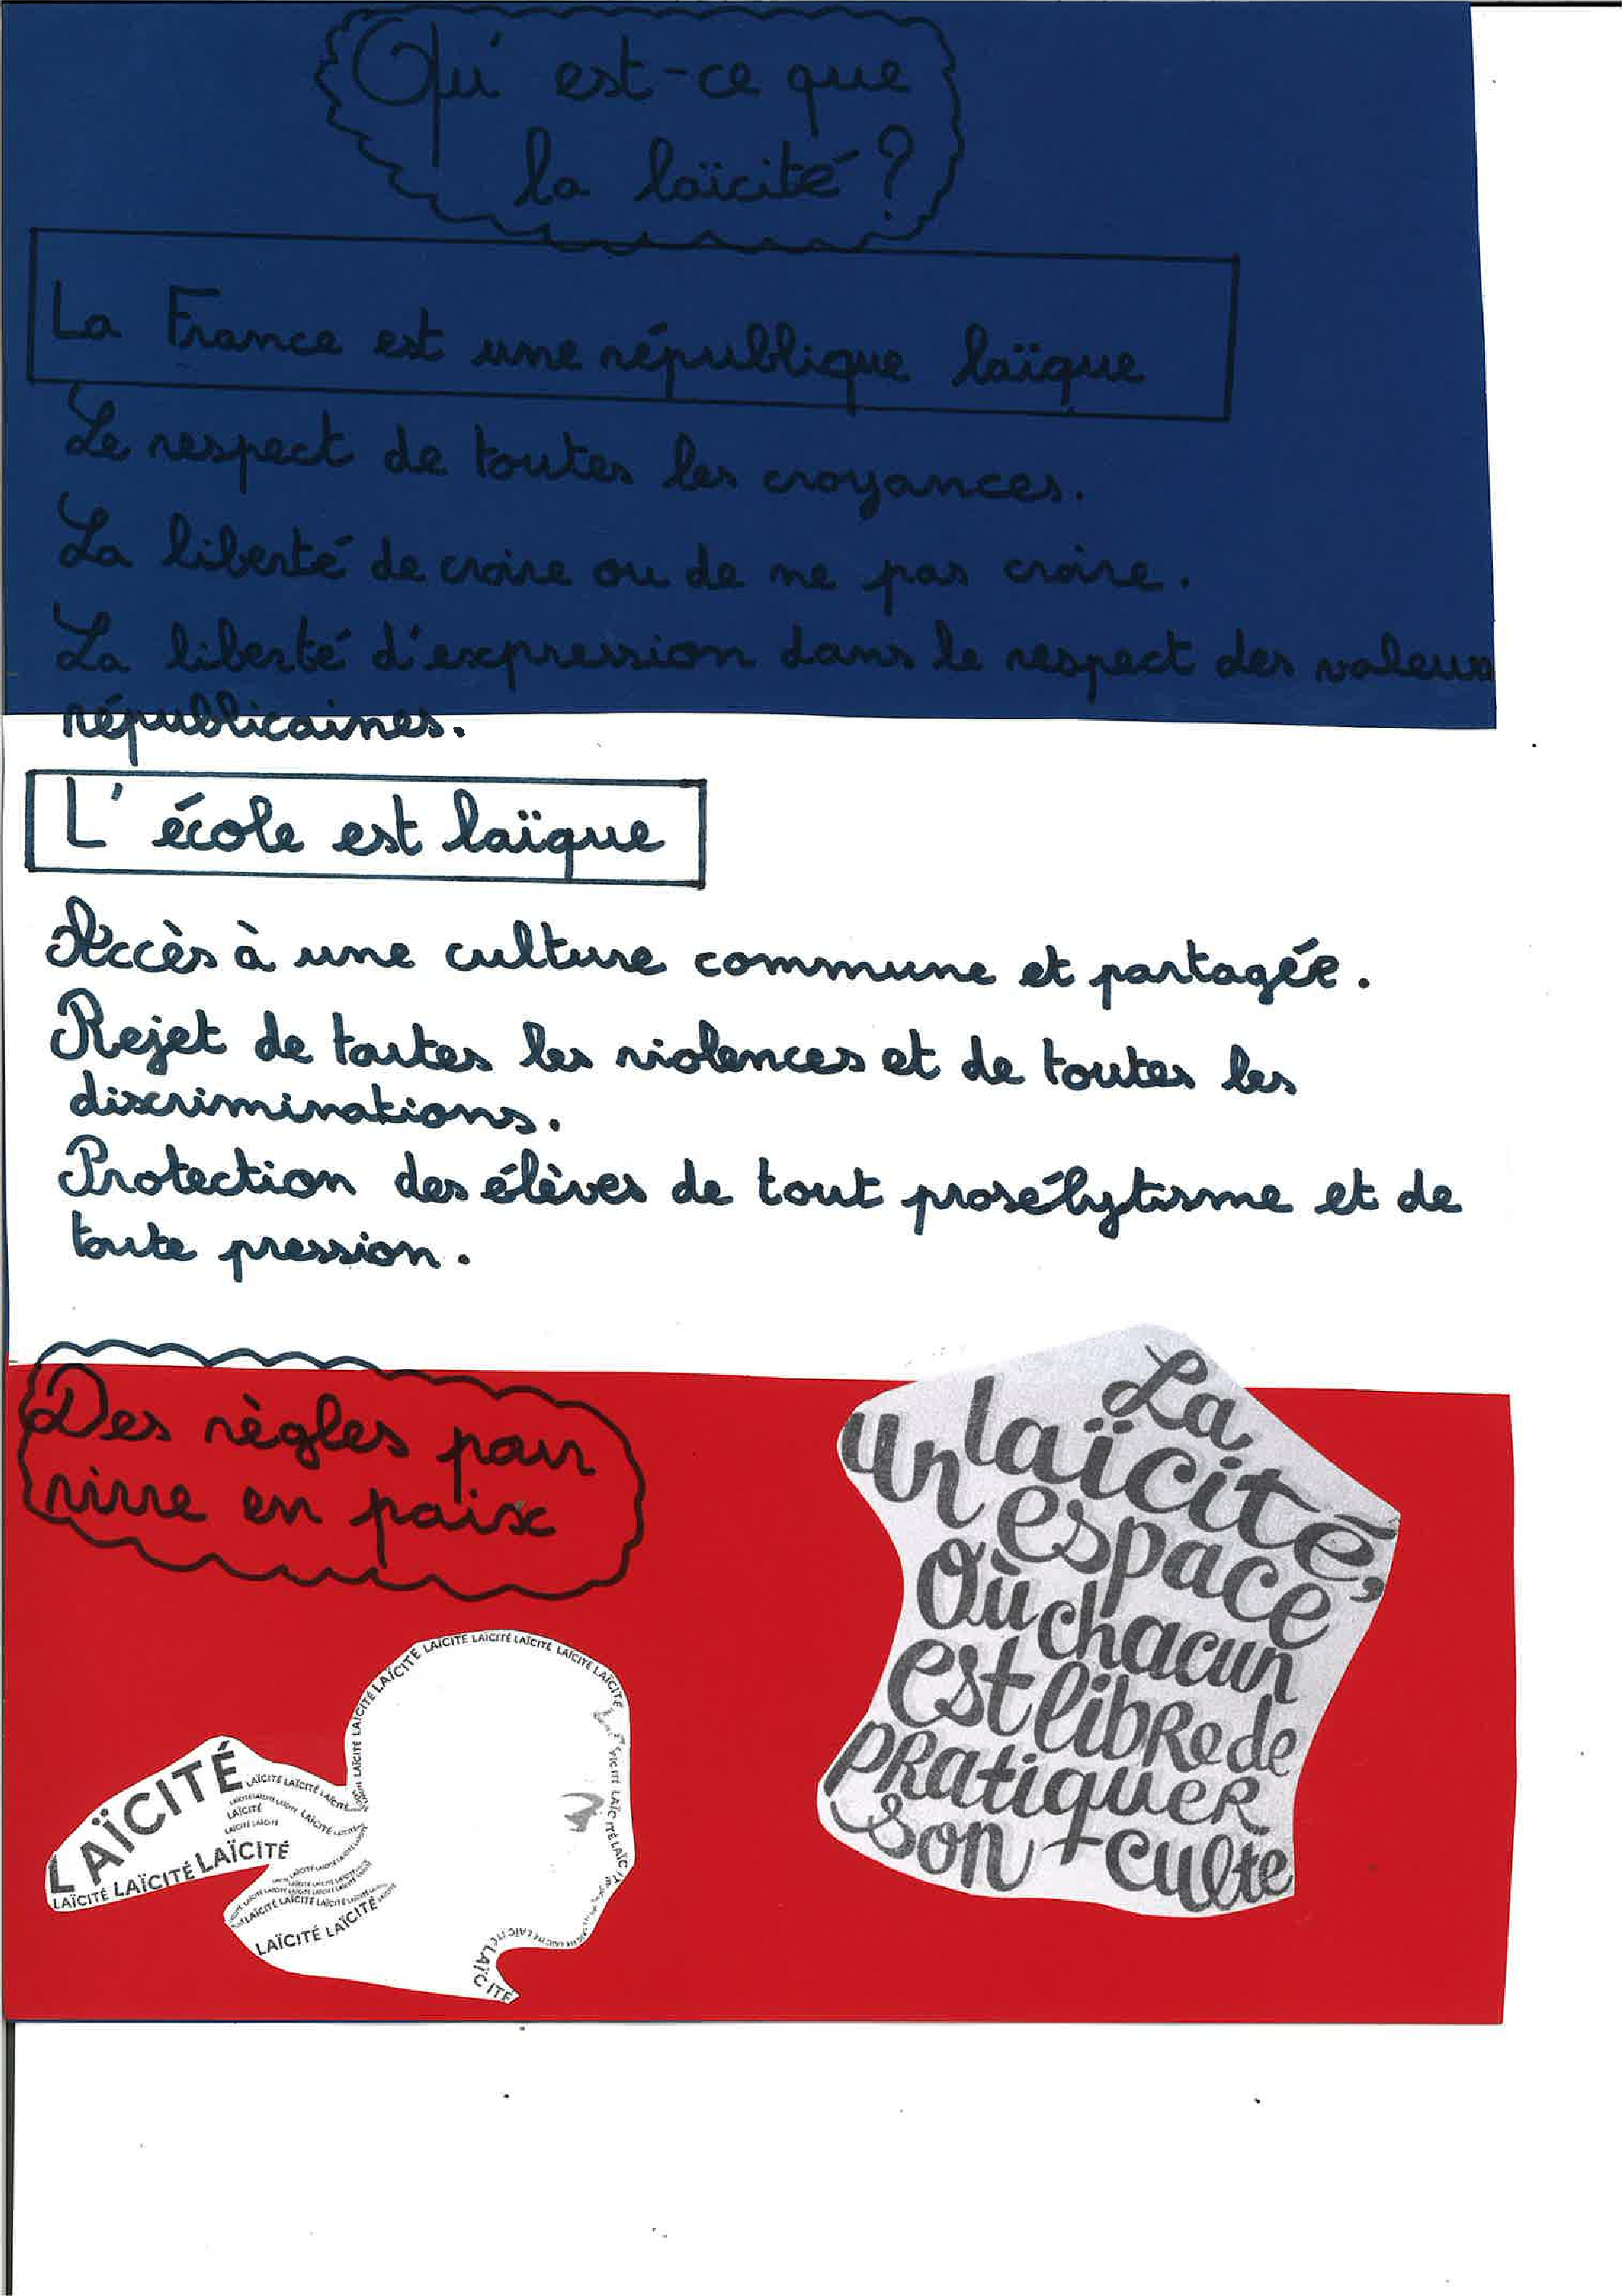 Qu'est-ce que
la laïcité ?
La France est une république laïque
Le respect de toutes les croyances.
La liberté de croire ou de ne pas croire.
La liberté d'expression dans le respect des valeurs
républicaines.
L'école est laïque
Accès à une culture commune et partagée.
Rejet de toutes les violences et de toutes les
discriminations.
Protection des élèves de tout prosélytisme et de
toute pression.
Des règles pour
vivre en paix
La
laïcité,
un espace
Où chacun
est libre de
pratiquer
son culte
LAÏCITÉ LAÏCITÉ LAÏCITÉ LAÏCITÉ LAÏCITÉ LAÏCITÉ LAÏCITÉ LAÏCITÉ LAÏCITÉ
LAÏCITÉ
LAÏCITÉ LAÏCITÉ LAÏCITÉ
LAÏCITÉ LAÏCITÉ LAÏCITÉ
LAÏCITÉ
LAÏCITÉ LAÏCITÉ
LAÏCITÉ LAÏCITÉ